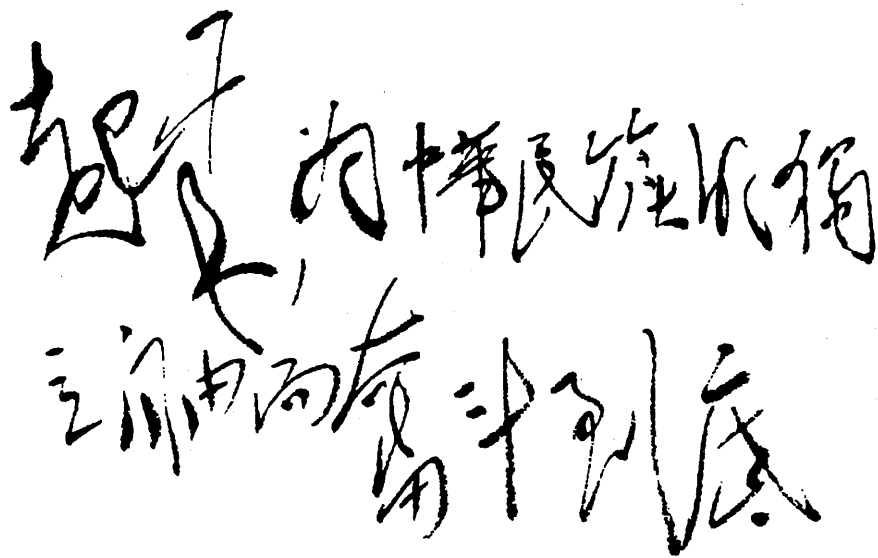 起来,为中華民族的獨
立自由而奮斗到底